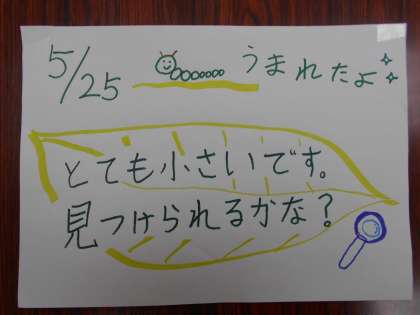 5/25 うまれたよ
とても小さいです。
見つけられるかな?